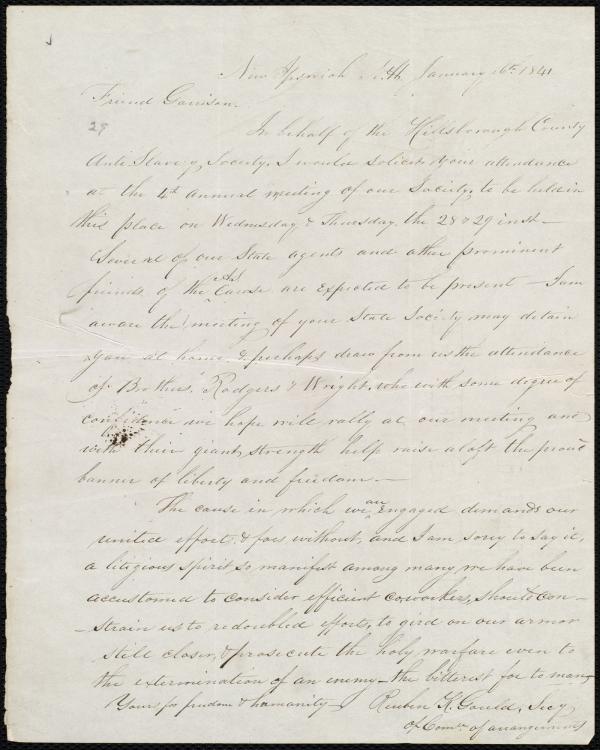 New Ipswich N.H. January 16th 1841
Friend Garrison.
29
In behalf of the Hillsborough County
Anti Slavery Society, I would solicit your attendance
at the 4th annual meeting of our Society, to be held in
this place on Wednesday & Thursday, the 28 & 29 inst—
Several of our State agents and other prominent
friends of the A.S. Cause are expected to be present — I am
aware the meeting of your State Society may detain
you at home, & perhaps draw from us the attendance
of Brothers, Rodgers & Wright, who with some degree of
confidence we hope will rally at our meeting and
with their giant strength help raise aloft the proud
banner of liberty and freedom.—
The cause in which we are engaged demands our
united effort, & foes without, and I am sorry to say it,
a litigious spirit so manifest among many we have been
accustomed to consider efficient coworkers, should con-
-strain us to redoubled efforts, to gird on our armor
still closer, & prosecute the holy warfare even to
the extermination of an enemy—the bitterest foe to man
Yours for freedom & humanity— Reuben K. Gould, Secy
of Comtt of arrangements